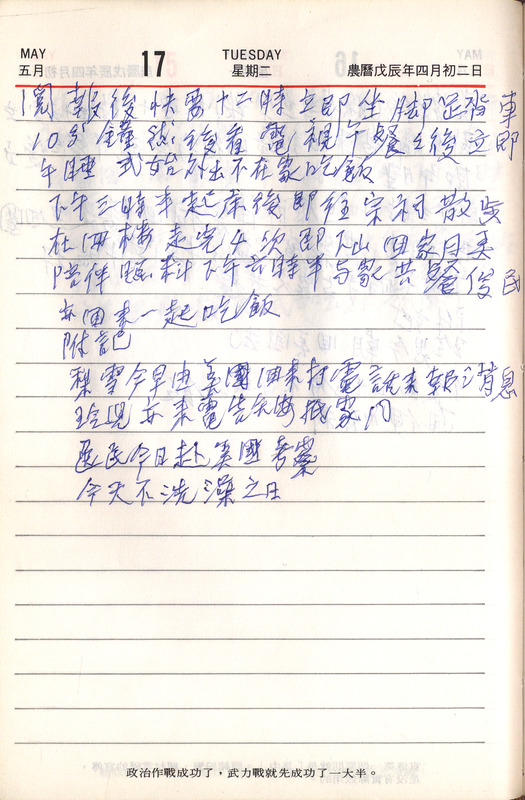 MAY 17 TUESDAY
五月 星期二 農曆戊辰年四月初二日
閱報後快要十二時立即坐腳踏車
10分鐘後看電視午餐後立即
午睡 式始外出不在家吃飯
下午三時半起床後即往宗祠散步
在四樓走完4次即下山回家月美
陪伴照料下午六時半与家共餐俊民
亦回來一起吃飯
附記
梨雪今早由美國回來打電話來報消息
玲兒亦來電告知安抵家門
民今日赴美國考察
今天不洗澡之日
政治作戰成功了，武力戰就先成功了一大半。